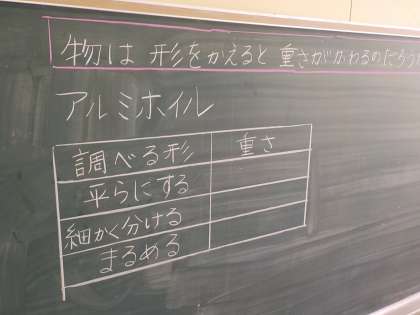 物は 形をかえると 重さがかわるのだろうか
アルミホイル
調べる形 重さ
平らにする
細かく分ける
まるめる